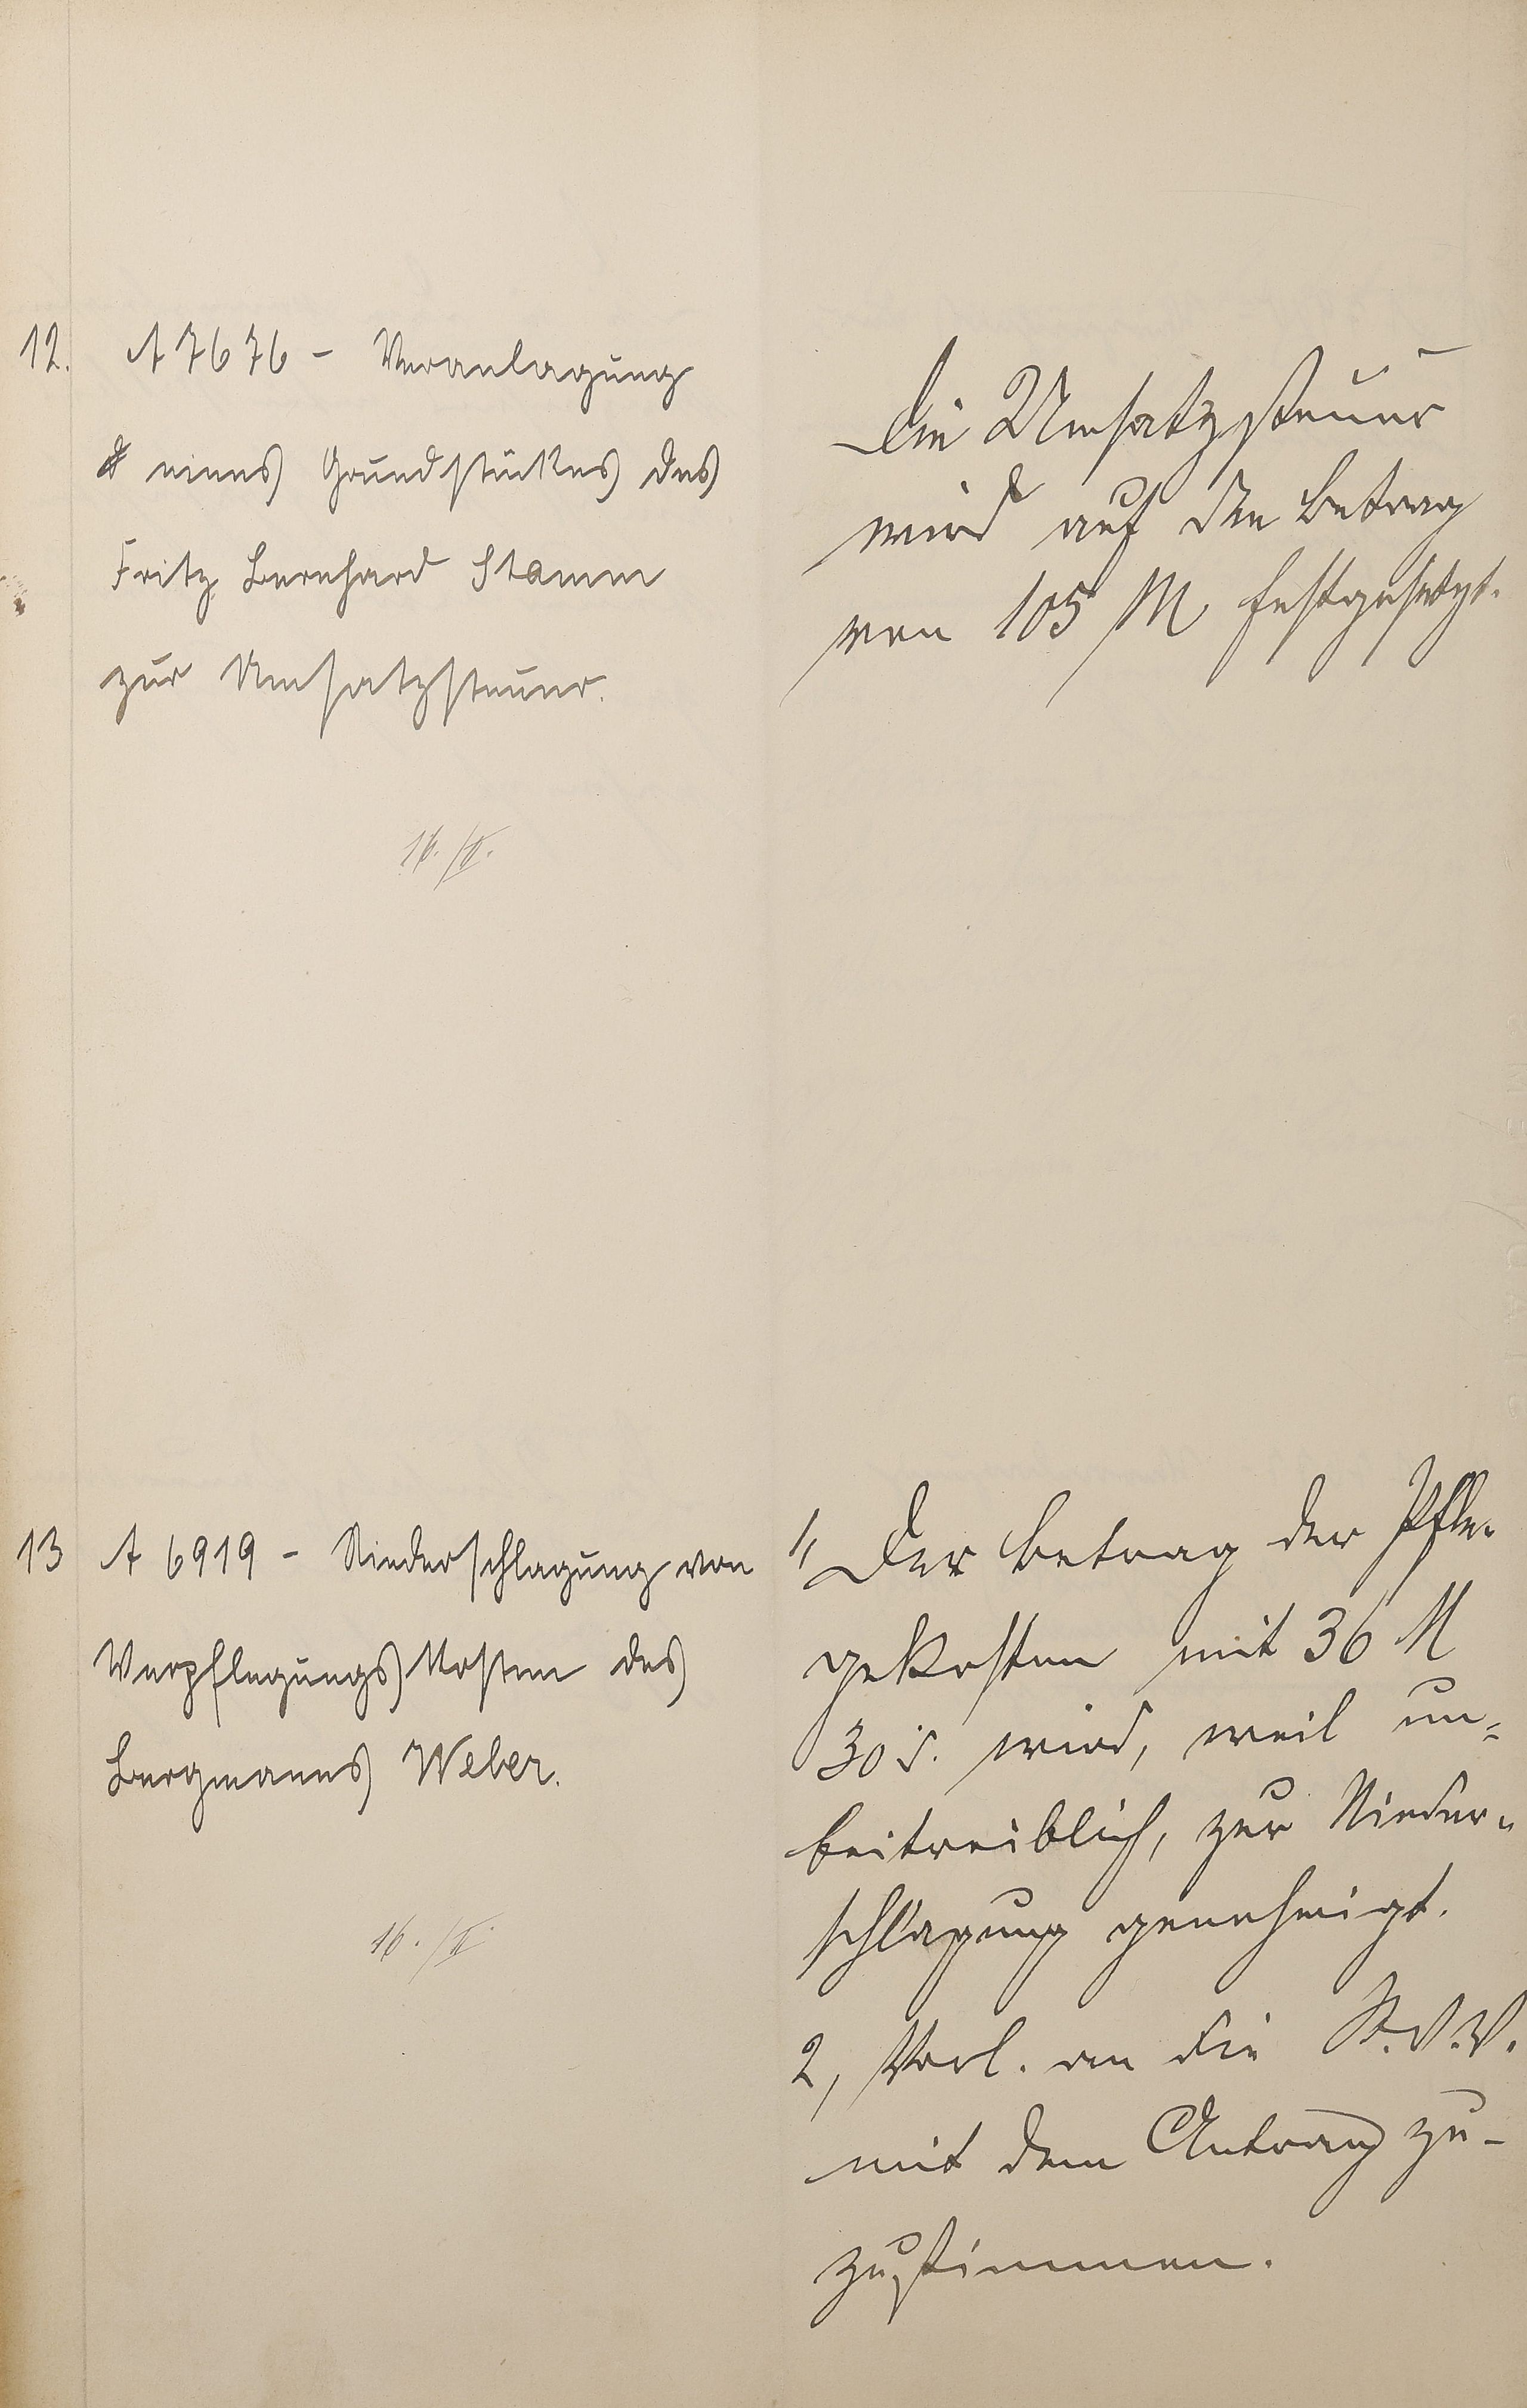 12. A 7676 - Veranlagung
eines Grundstückes des
Fritz Bernhard Stamm
zur Umsatzsteuer.
16./II.
Die Umsatzsteuer
wird auf den Betrag
von 105 M festgesetzt.
13 A 6919 - Niederschlagung von
Verpflegungskosten des
Bergmanns Weber.
16./II.
1, Der Betrag der Pfle-
gekosten mit 36 M
30 wird, weil un-
beitreiblich, zur Nieder-
schlagung genehmigt.
2, Vorl. an die St.V.V.
mit dem Antrag zu-
zustimmen.